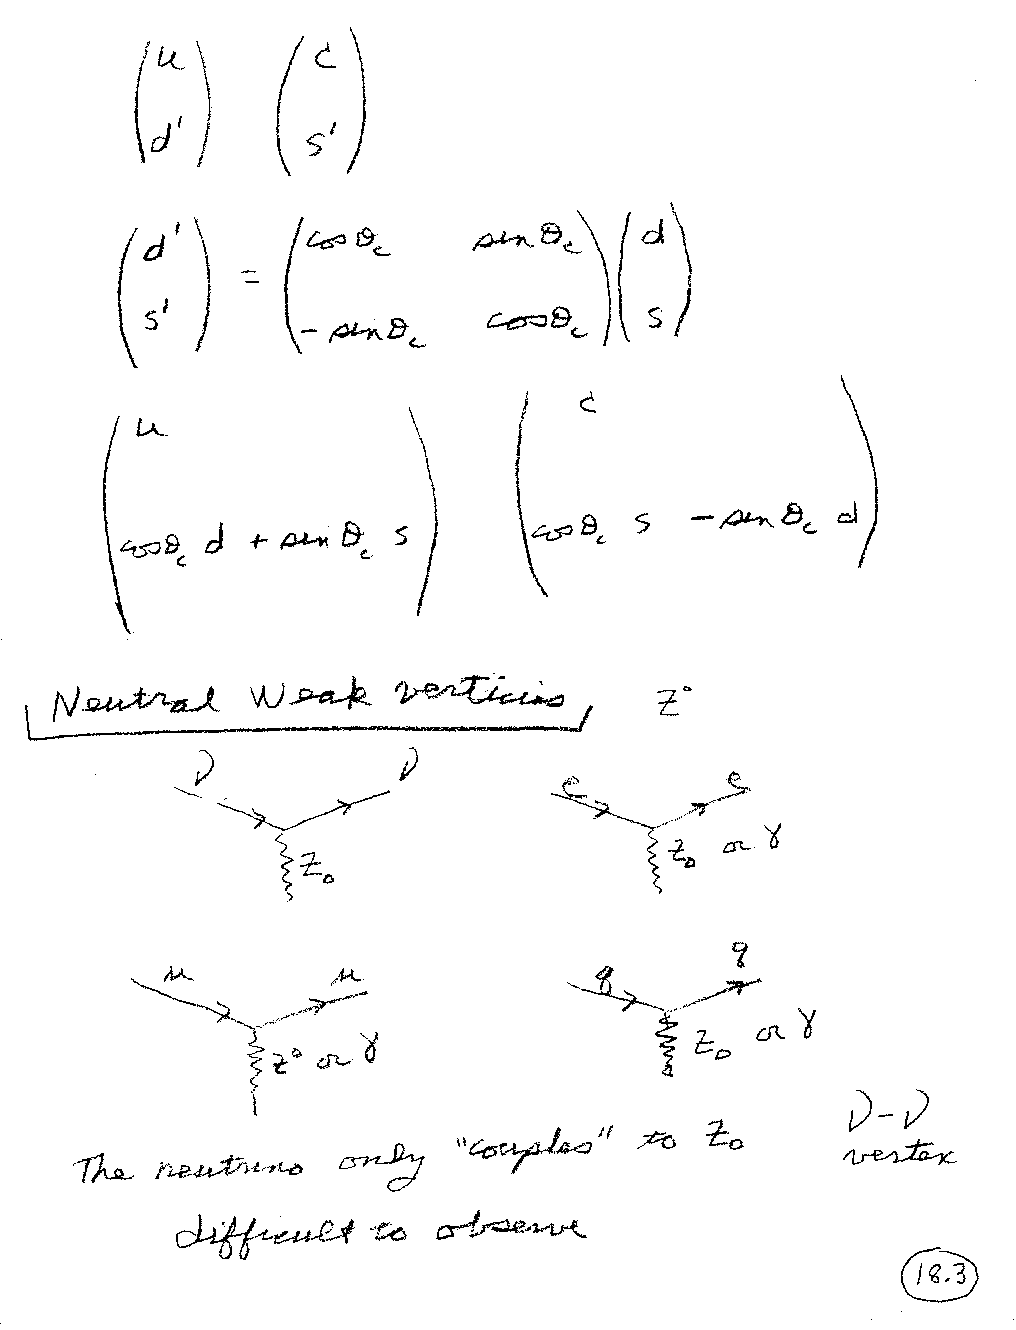 ( u ) ( c )
( d' ) ( s' )
( d' ) = ( cos θc sin θc ) ( d )
( s' ) ( - sin θc cos θc ) ( s )
( u ) ( c )
( cos θc d + sin θc s ) ( cos θc s - sin θc d )
Neutral Weak verticies Z°
ν ν e e
Z₀ Z₀ or γ
μ μ q q
Z° or γ Z₀ or γ
The neutrino only "couples" to Z₀ ν-ν vertex
difficult to observe
18.3